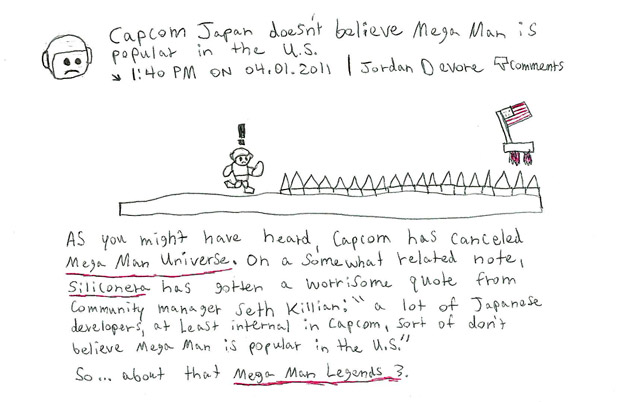 Capcom Japan doesn't believe Mega Man is
popular in the U.S.
1:40 PM ON 04.01.2011 | Jordan Devore Comments
!
As you might have heard, Capcom has canceled
Mega Man Universe. On a somewhat related note,
Siliconera has gotten a worrisome quote from
Community manager Seth Killian: "a lot of Japanese
developers, at least internal in Capcom, sort of don't
believe Mega Man is popular in the U.S."
So... about that Mega Man Legends 3.